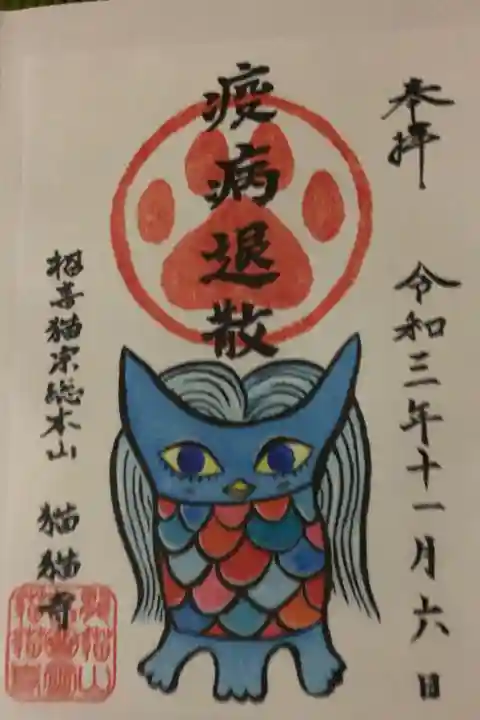 奉拝
令和三年十一月六日
疫病退散
招喜猫宗総本山 猫猫寺